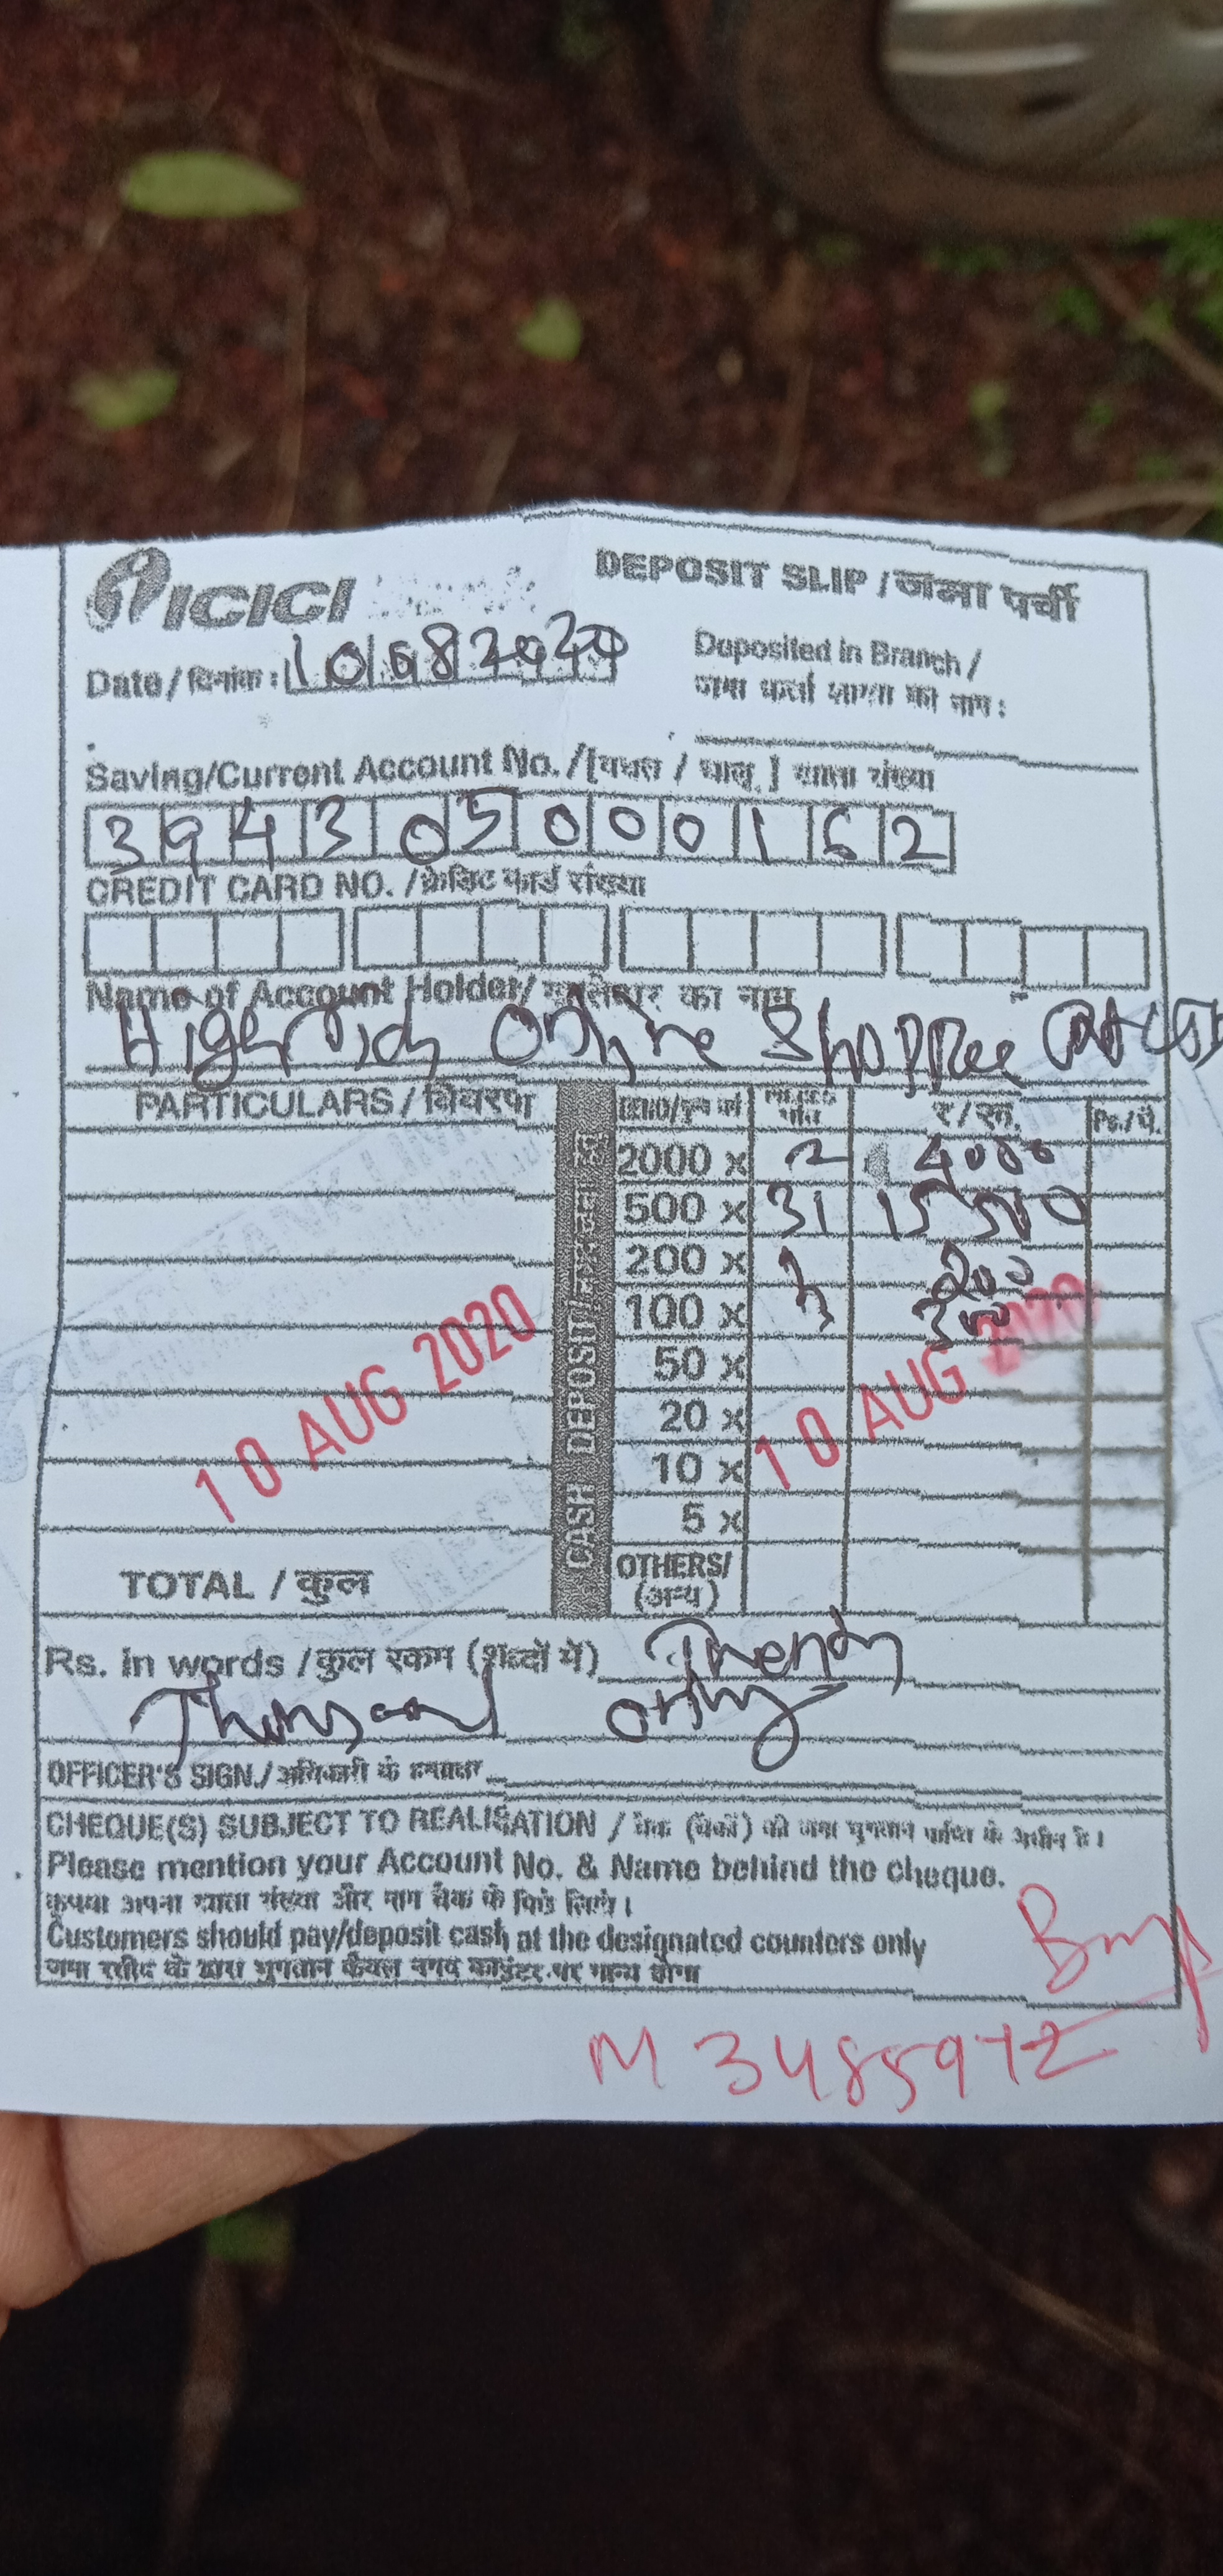 ICICI
DEPOSIT SLIP / जमा पर्ची
Date / दिनांक : 10082020
Deposited in Branch /
जमा कर्ता शाखा का नाम :
Saving/Current Account No. / [बचत / चालू ] खाता संख्या
394305000162
CREDIT CARD NO. / क्रेडिट कार्ड संख्या
Name of Account Holder/ का नाम
Highrich Online Shoppee
PARTICULARS / विवरण
₹ / रू. Ps./पै.
CASH DEPOSIT
2000 x 2 4000
500 x 31 15500
200 x 1 200
100 x 3 300
50 x
20 x
10 x
5 x
OTHERS/
(अन्य)
10 AUG 2020
10 AUG 2020
TOTAL / कुल
Rs. in words / कुल रकम (शब्दों में) Twenty
Thousand only
OFFICER'S SIGN./ अधिकारी के हस्ताक्षर
CHEQUE(S) SUBJECT TO REALISATION / चेक (चेकों) की जमा भुगतान प्राप्ति के अधीन है।
Please mention your Account No. & Name behind the cheque.
कृपया अपना खाता संख्या और नाम चेक के पिछे लिखे।
Customers should pay/deposit cash at the designated counters only
जमा रसीद के द्वारा भुगतान केवल नगद काउंटर पर मान्य होगा
M 3485972